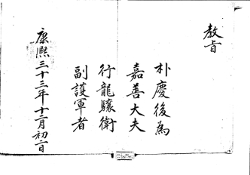 教旨
朴慶後爲
嘉善大夫
行龍驤衛
副護軍者
康熙三十三年十二月初一日